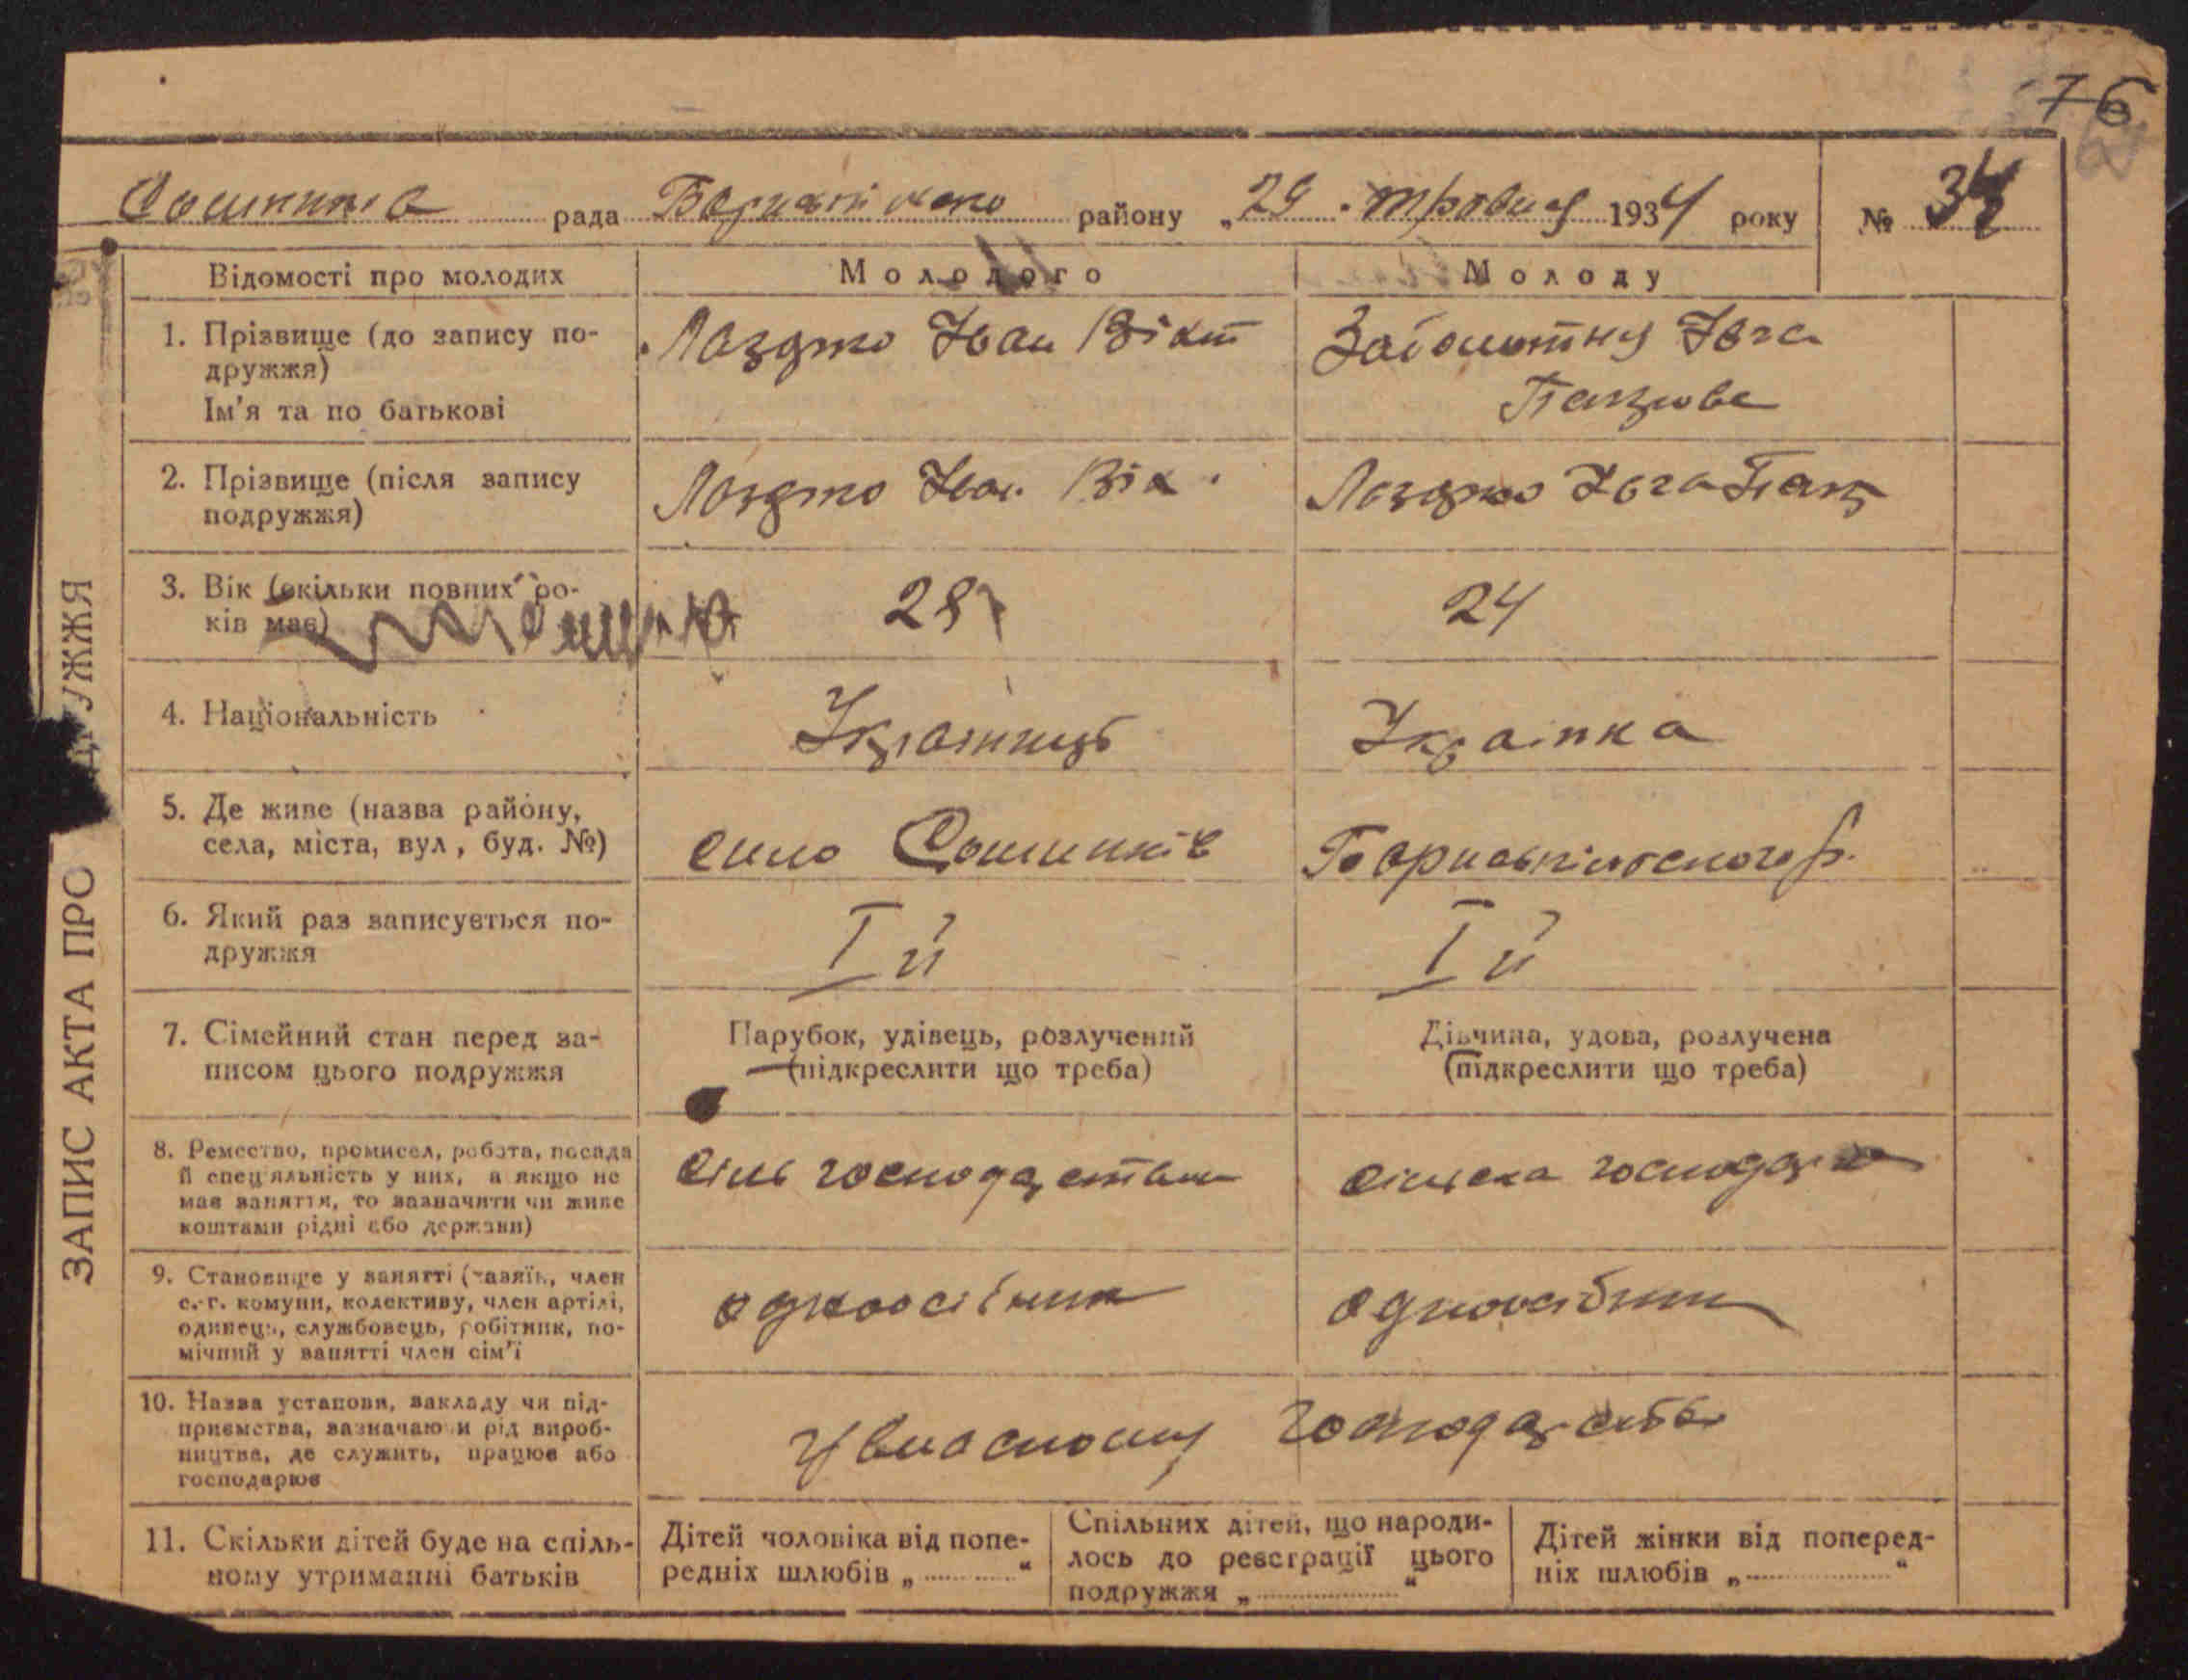 76
рада району „29 " травня 1934 року № 34
Відомості про молодих Молодого Молоду
1. Прізвище (до запису по-
дружжя)
Ім'я та по батькові
Іван Вікт
2. Прізвище (після запису
подружжя)
Іван Вік.
3. Вік (скільки повних ро-
ків має)
28 24
4. Національність
Українець Українка
5. Де живе (назва району,
села, міста, вул, буд. №)
село Сошників Бориспільського р.
6. Який раз записується по-
дружжя
І й І й
7. Сімейний стан перед за-
писом цього подружжя
Парубок, удівець, розлучений
(підкреслити що треба)
Дівчина, удова, розлучена
(підкреслити що треба)
8. Ремество, промисел, робота, посада
й спец'яльність у них, а якщо не
має заняття, то зазначити чи живе
коштами рідні або держави)
сіль господарства
сільска господарка
9. Становище у занятті (хазяїн, член
с.-г. комуни, колективу, член артілі,
одинець, службовець, робітник, по-
мічний у занятті член сім'ї
одноосібник одноосібник
10. Назва установи, закладу чи під-
приємства, зазначаючи рід вироб-
ництва, де служить, працює або
господарює
У власному господарстві
11. Скільки дітей буде на спіль-
ному утриманні батьків
Дітей чоловіка від попе-
редніх шлюбів „ “
Спільних дітей, що народи-
лось до реєстрації цього
подружжя „ “
Дітей жінки від поперед-
ніх шлюбів „ “
ЗАПИС АКТА ПРО ДРУЖЖЯ